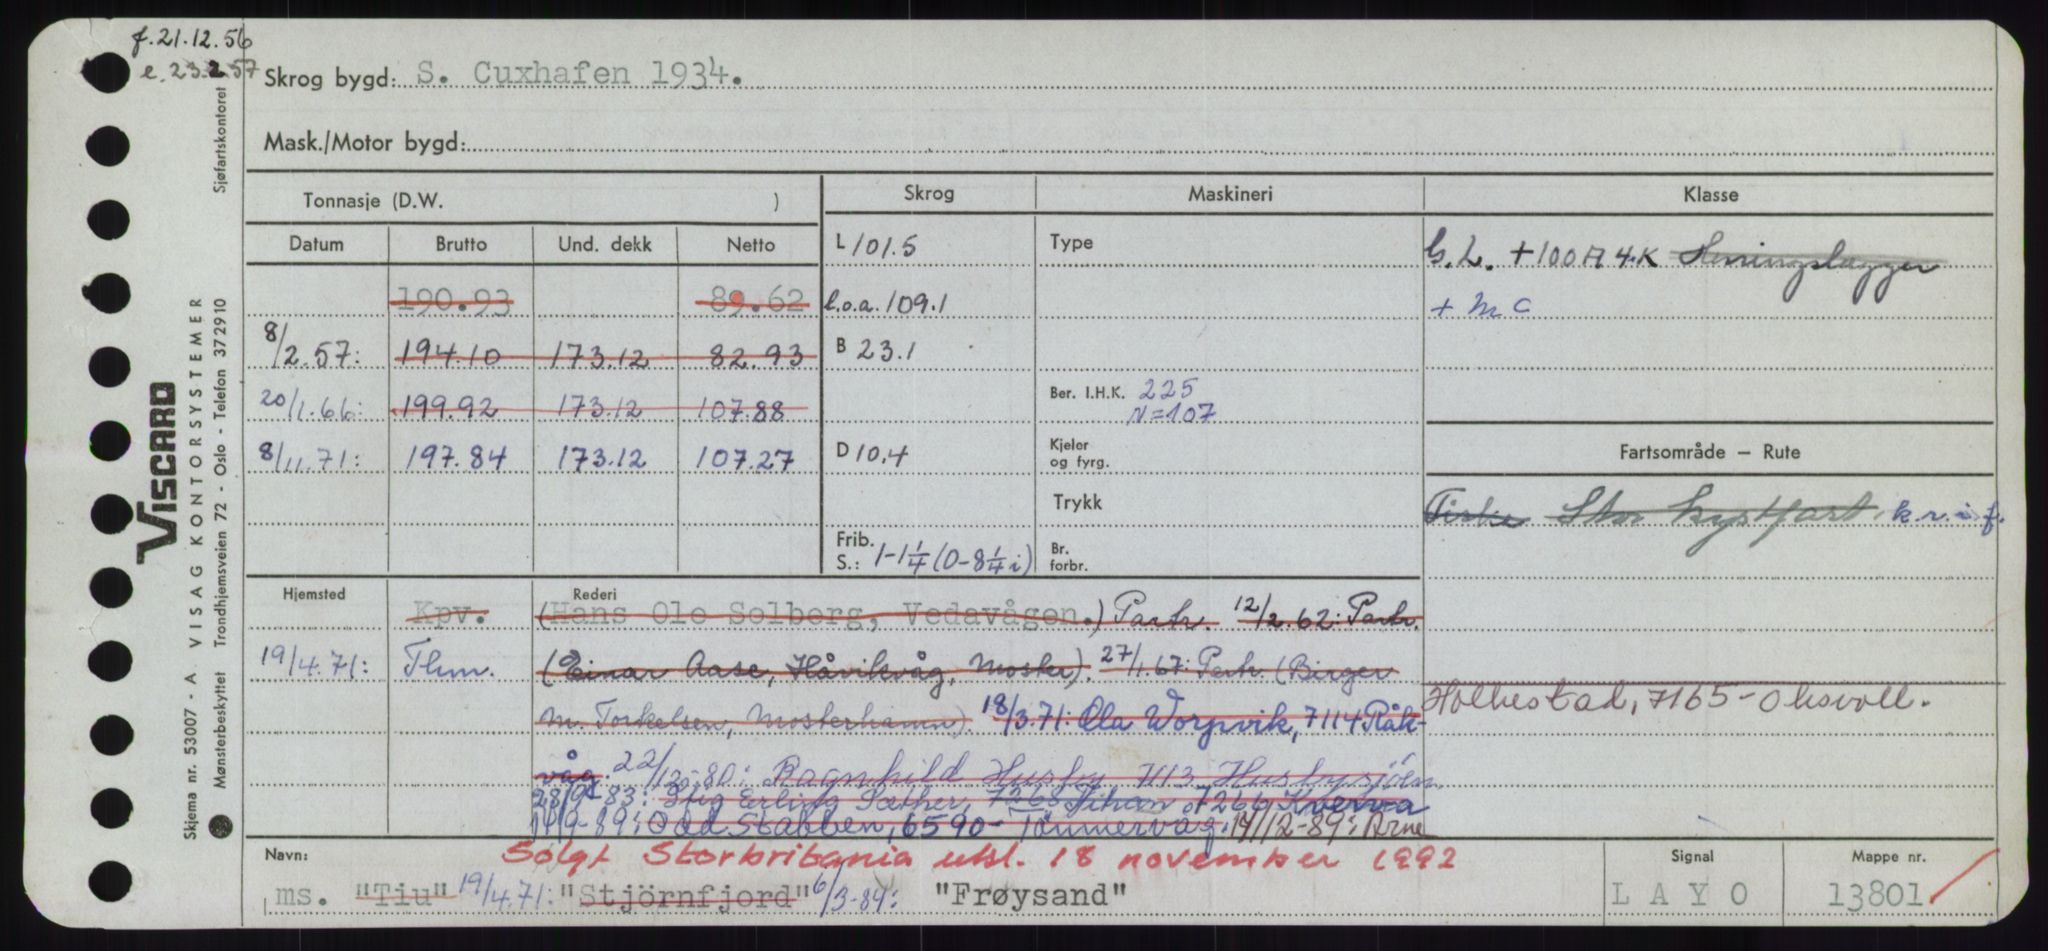 f. 21.12.56
e. 23.2.57
Skrog bygd: S. Cuxhafen 1934.
Mask./Motor bygd:
Tonnasje (D.W. )
Skrog
Maskineri
Klasse
Datum Brutto Und. dekk Netto
190.93 89.62
8/2.57: 194.10 173.12 82.93
20/1.66: 199.92 173.12 107.88
8/11.71: 197.84 173.12 107.27
L 101.5
l.o.a. 109.1
B 23.1
D 10.4
Frib. S.: 1-1¼ (0-8¼ i)
Type
Ber. I.H.K. 225
N=107
Kjeler og fyrg.
Trykk
Br. forbr.
G.L. +100 A 4.K Herringslugger
+ MC
Fartsområde – Rute
Fiske Stor kystfart. k.r.i.f.
Hjemsted
Rederi
Kpv. (Hans Ole Solberg, Vedavågen.) Partr. 12/2.62: Partr.
19/4.71: Thm. (Einar Aase, Håvikvåg, Moster). 27/1.67: Partr. (Birger
M. Torkelsen, Mosterhamn). 18/3.71: Ola Worpvik, 7114 Råk-
våg. 22/12-80: Ragnhild Husby 7113 Husbysjöen
28/9-83: Stig Erling Sæther, 7268 7266 Kverva
Odd Stabben, 6590- Tömmervåg. 14/12-89: Arne
Holkestad, 7165-Oksvoll.
Navn:
Solgt Storbritania utsl. 18 november 1992
ms. "Tiu" 19/4.71: "Stjörnfjord" 6/3-84: "Frøysand"
Signal
L A Y O
Mappe nr.
13801
VISCARD
VISAG KONTORSYSTEMER
Skjema nr. 53007 - A
Mønsterbeskyttet Trondhjemsveien 72 - Oslo - Telefon 372910 Sjøfartskontoret